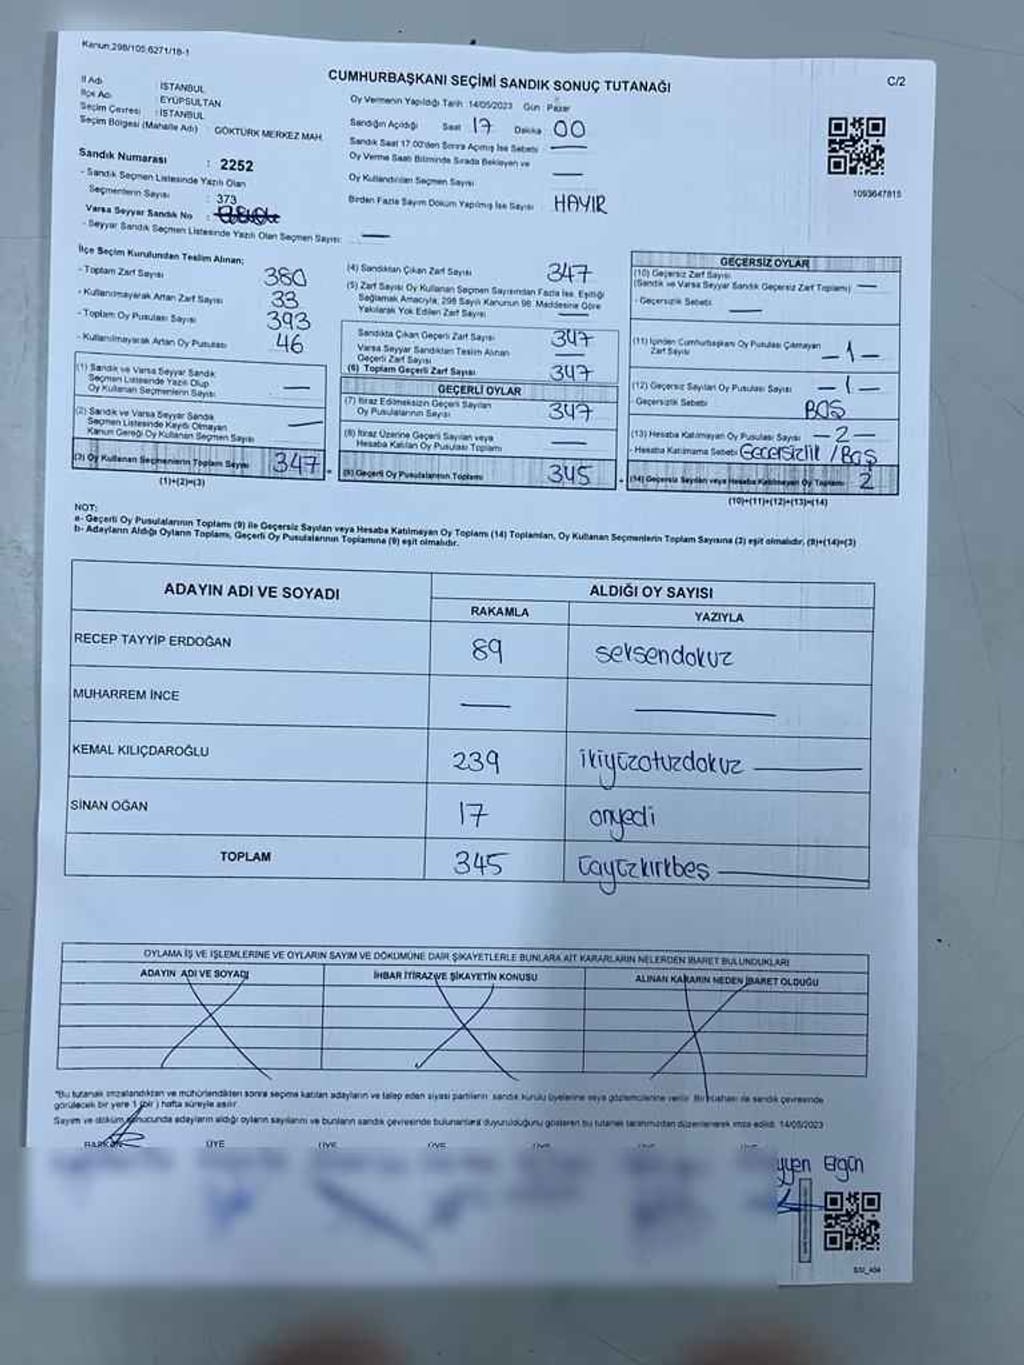 Kanun 298/105,6271/18-1
CUMHURBAŞKANI SEÇİMİ SANDIK SONUÇ TUTANAĞI
C/2
İl Adı : İSTANBUL
İlçe Adı : EYÜPSULTAN
Seçim Çevresi : İSTANBUL
Seçim Bölgesi (Mahalle Adı) GÖKTÜRK MERKEZ MAH.
Sandık Numarası : 2252
- Sandık Seçmen Listesinde Yazılı Olan
Seçmenlerin Sayısı : 373
Varsa Seyyar Sandık No :
- Seyyar Sandık Seçmen Listesinde Yazılı Olan Seçmen Sayısı: —
Oy Vermenin Yapıldığı Tarih :14/05/2023 Gün : Pazar
Sandığın Açıldığı Saat 17 Dakika 00
Sandık Saat 17.00'den Sonra Açılmış İse Sebebi : —
Oy Verme Saati Bitiminde Sırada Bekleyen ve
Oy Kullandırılan Seçmen Sayısı —
Birden Fazla Sayım Döküm Yapılmış İse Sayısı : HAYIR
1093647815
İlçe Seçim Kurulundan Teslim Alınan;
- Toplam Zarf Sayısı 380
- Kullanılmayarak Artan Zarf Sayısı 33
- Toplam Oy Pusulası Sayısı 393
- Kullanılmayarak Artan Oy Pusulası 46
(1) Sandık ve Varsa Seyyar Sandık
Seçmen Listesinde Yazılı Olup
Oy Kullanan Seçmenlerin Sayısı —
(2) Sandık ve Varsa Seyyar Sandık
Seçmen Listesinde Kaydı Olmayan
Kanun Gereği Oy Kullanan Seçmen Sayısı —
(3) Oy Kullanan Seçmenlerin Toplam Sayısı 347
(1)+(2)=(3)
(4) Sandıktan Çıkan Zarf Sayısı 347
(5) Zarf Sayısı Oy Kullanan Seçmen Sayısından Fazla İse, Eşitliği
Sağlamak Amacıyla, 298 Sayılı Kanunun 98. Maddesine Göre
Yakılarak Yok Edilen Zarf Sayısı —
Sandıkta Çıkan Geçerli Zarf Sayısı 347
Varsa Seyyar Sandıktan Teslim Alınan
Geçerli Zarf Sayısı —
(6) Toplam Geçerli Zarf Sayısı 347
GEÇERLİ OYLAR
(7) İtiraz Edilmeksizin Geçerli Sayılan
Oy Pusulalarının Sayısı 347
(8) İtiraz Üzerine Geçerli Sayılan veya
Hesaba Katılan Oy Pusulası Toplamı —
(9) Geçerli Oy Pusulalarının Toplamı 345
GEÇERSİZ OYLAR
(10) Geçersiz Zarf Sayısı
(Sandık ve Varsa Seyyar Sandık Geçersiz Zarf Toplamı) —
- Geçersizlik Sebebi —
(11) İçinden Cumhurbaşkanı Oy Pusulası Çıkmayan
Zarf Sayısı -1-
(12) Geçersiz Sayılan Oy Pusulası Sayısı -1-
- Geçersizlik Sebebi BOŞ
(13) Hesaba Katılmayan Oy Pusulası Sayısı -2-
- Hesaba Katılmama Sebebi Geçersizlik /Boş
(14) Geçersiz Sayılan veya Hesaba Katılmayan Oy Toplamı 2
(10)+(11)+(12)+(13)=(14)
NOT:
a- Geçerli Oy Pusulalarının Toplamı (9) ile Geçersiz Sayılan veya Hesaba Katılmayan Oy Toplamı (14) Toplamları, Oy Kullanan Seçmenlerin Toplam Sayısına (3) eşit olmalıdır. (9)+(14)=(3)
b- Adayların Aldığı Oyların Toplamı, Geçerli Oy Pusulalarının Toplamına (9) eşit olmalıdır.
ADAYIN ADI VE SOYADI
ALDIĞI OY SAYISI
RAKAMLA YAZIYLA
RECEP TAYYİP ERDOĞAN 89 seksendokuz
MUHARREM İNCE — —
KEMAL KILIÇDAROĞLU 239 ikiyüzotuzdokuz
SİNAN OĞAN 17 onyedi
TOPLAM 345 üçyüzkırkbeş
OYLAMA İŞ VE İŞLEMLERİNE VE OYLARIN SAYIM VE DÖKÜMÜNE DAİR ŞİKAYETLERLE BUNLARA AİT KARARLARIN NELERDEN İBARET BULUNDUKLARI
ADAYIN ADI VE SOYADI İHBAR İTİRAZ VE ŞİKAYETİN KONUSU ALINAN KARARIN NEDEN İBARET OLDUĞU
*Bu tutanak imzalandıktan ve mühürlendikten sonra seçime katılan adayların ve talep eden siyasi partilerin sandık kurulu üyelerine veya gözlemcilerine verilir. Bir nüshası ile sandık çevresinde
görülecek bir yere 1 (bir) hafta süreyle asılır.
Sayım ve döküm sonucunda adayların aldığı oyların sayılarını ve bunların sandık çevresinde bulunanlara duyurulduğunu gösteren bu tutanak tarafımızdan düzenlenerek imza edildi. 14/05/2023
BAŞKAN ÜYE ÜYE ÜYE ÜYE ÜYE
Ergün